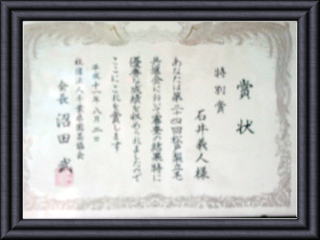 賞状
特別賞
石井義人様
あなたは第二十四回松戸梨立毛
共進会において審査の結果特に
優秀な成績を収められましたので
ここにこれを賞します
平成十一年八月二日
社団法人千葉県園芸協会
会長 沼田武